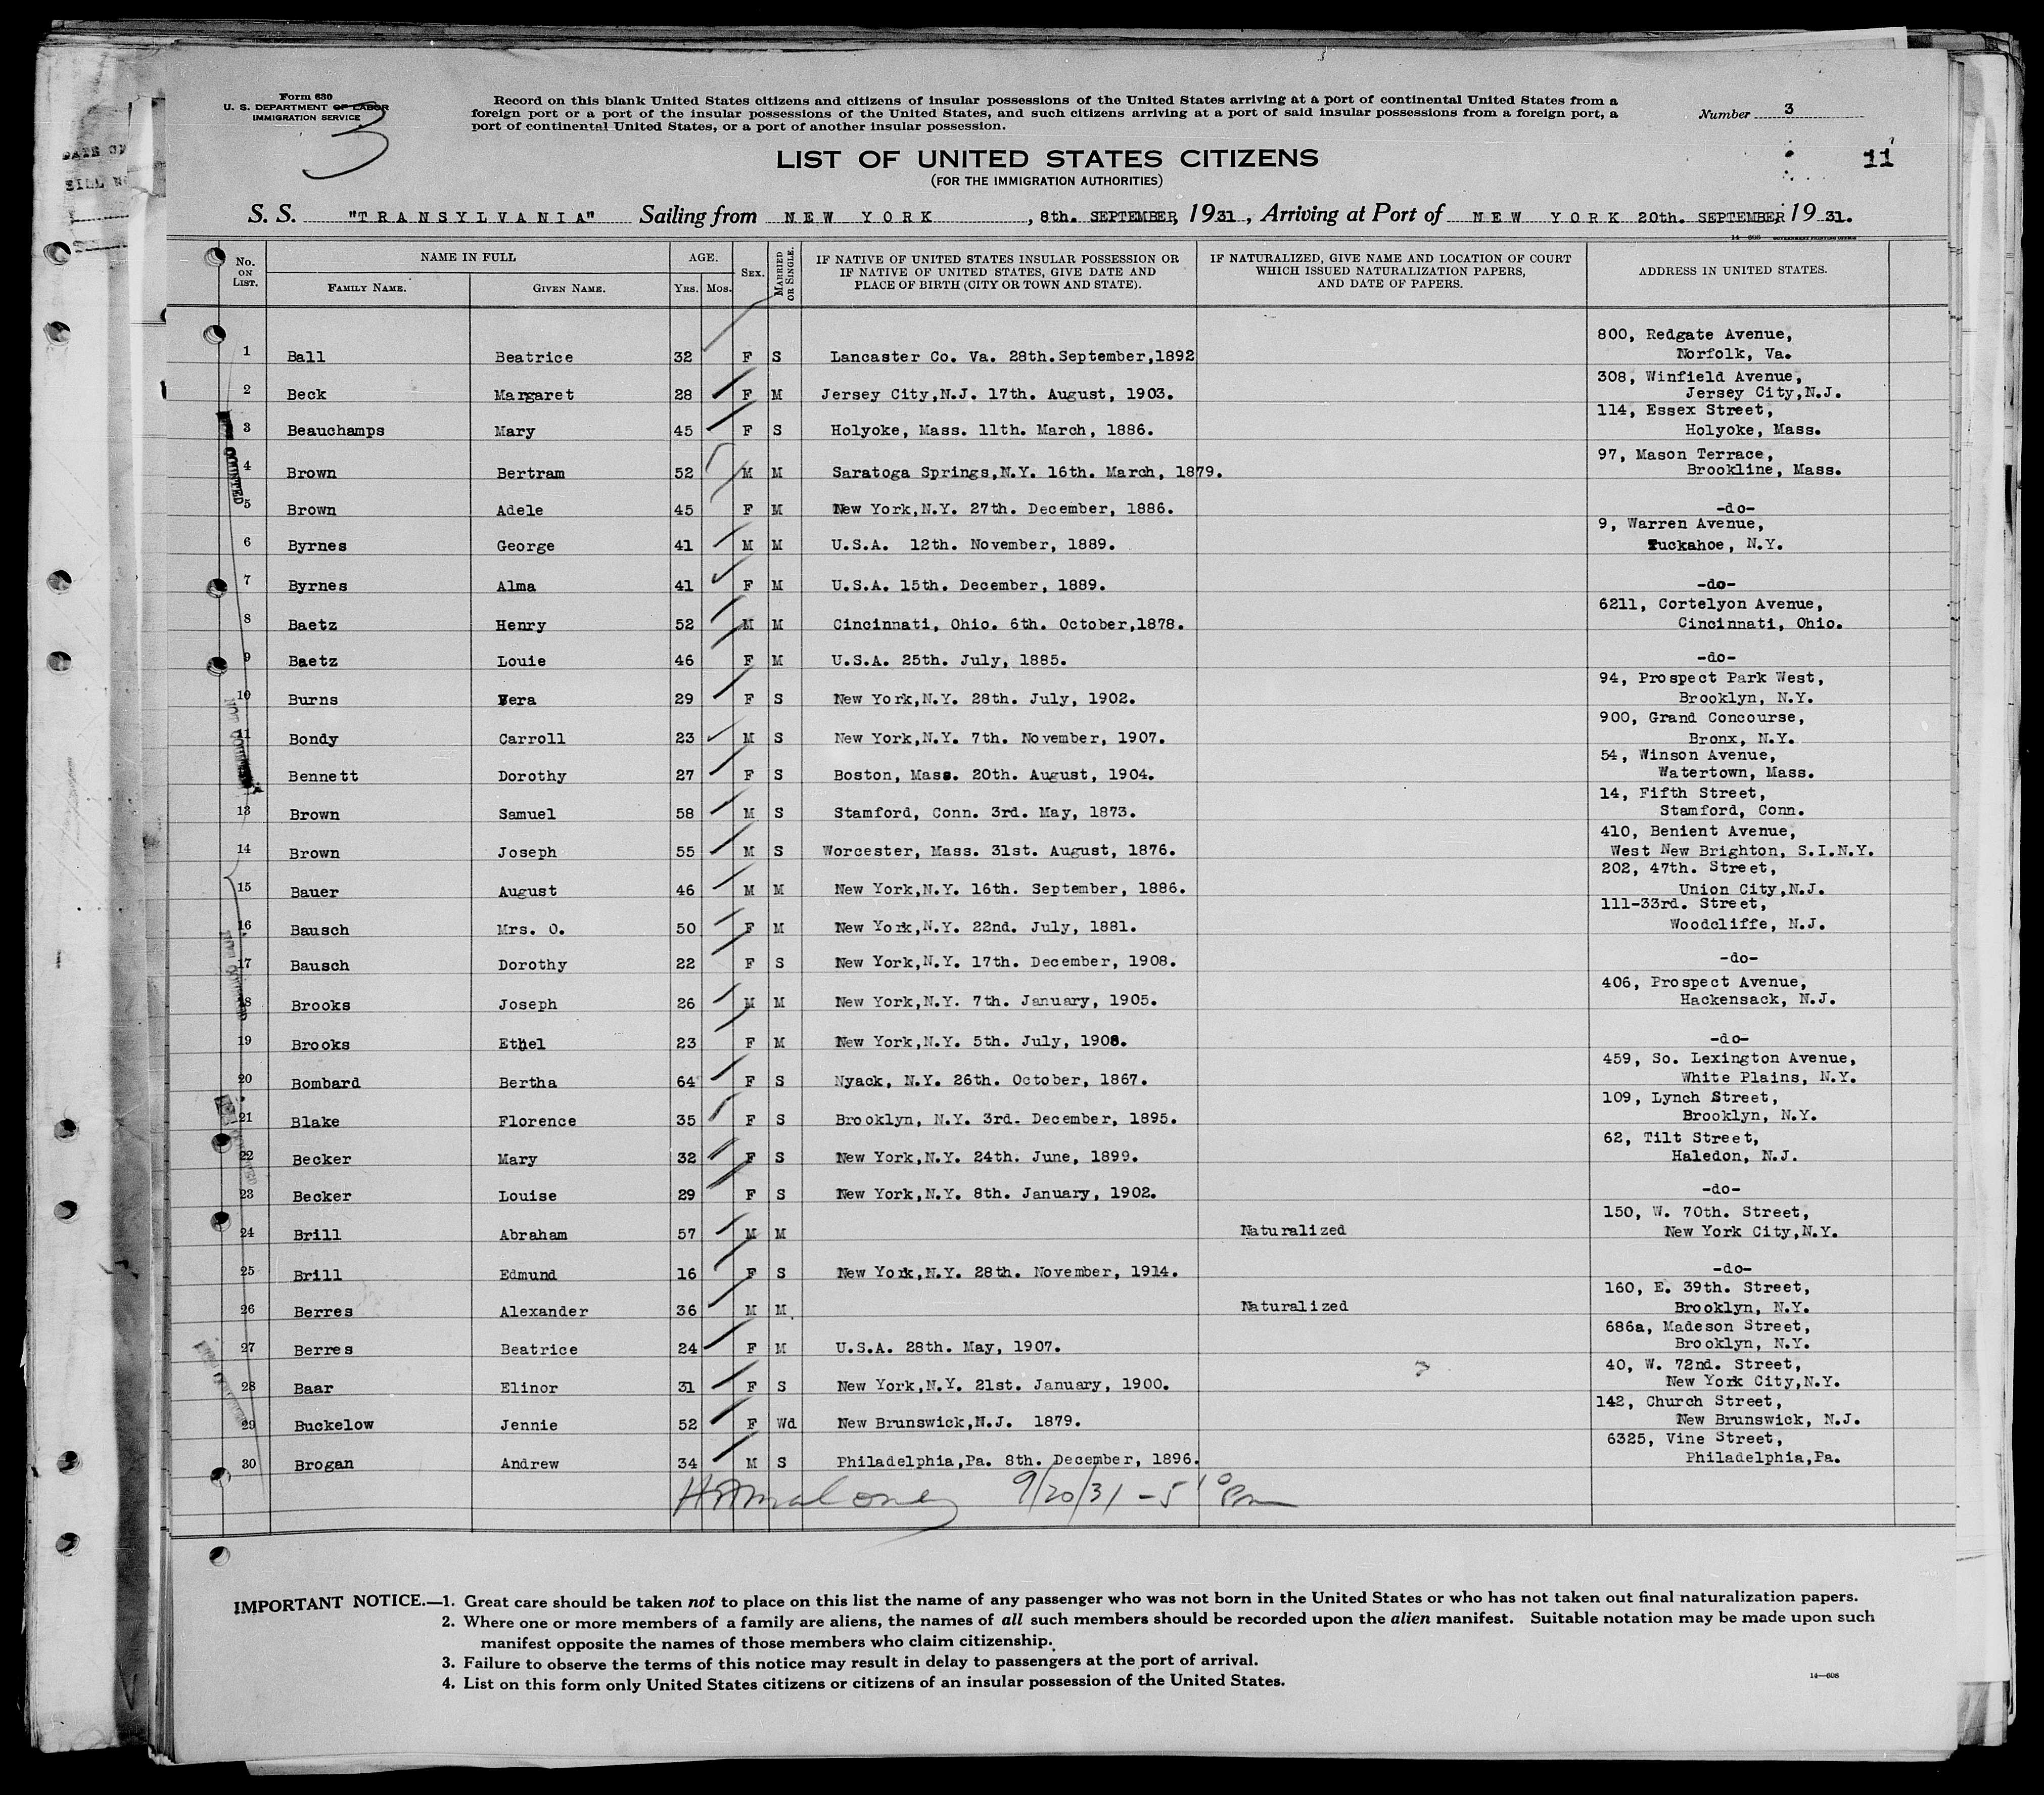 Form 630
U. S. DEPARTMENT OF LABOR
IMMIGRATION SERVICE
3
Record on this blank United States citizens and citizens of insular possessions of the United States arriving at a port of continental United States from a
foreign port or a port of the insular possessions of the United States, and such citizens arriving at a port of said insular possessions from a foreign port, a
port of continental United States, or a port of another insular possession.
Number 3
LIST OF UNITED STATES CITIZENS
(FOR THE IMMIGRATION AUTHORITIES)
11
S. S. "TRANSYLVANIA" Sailing from NEW YORK, 8th. SEPTEMBER, 1931, Arriving at Port of NEW YORK 20th. SEPTEMBER, 1931.
14—608 GOVERNMENT PRINTING OFFICE
No. ON LIST. NAME IN FULL FAMILY NAME. GIVEN NAME. AGE. YRS. MOS. SEX. MARRIED OR SINGLE. IF NATIVE OF UNITED STATES INSULAR POSSESSION OR IF NATIVE OF UNITED STATES, GIVE DATE AND PLACE OF BIRTH (CITY OR TOWN AND STATE). IF NATURALIZED, GIVE NAME AND LOCATION OF COURT WHICH ISSUED NATURALIZATION PAPERS, AND DATE OF PAPERS. ADDRESS IN UNITED STATES.
1 Ball Beatrice 32 F S Lancaster Co. Va. 28th.September,1892 800, Redgate Avenue, Norfolk, Va.
2 Beck Margaret 28 F M Jersey City,N.J. 17th. August, 1903. 308, Winfield Avenue, Jersey City,N.J.
3 Beauchamps Mary 45 F S Holyoke, Mass. 11th. March, 1886. 114, Essex Street, Holyoke, Mass.
4 Brown Bertram 52 M M Saratoga Springs,N.Y. 16th. March, 1879. 97, Mason Terrace, Brookline, Mass.
5 Brown Adele 45 F M New York,N.Y. 27th. December, 1886. -do-
6 Byrnes George 41 M M U.S.A. 12th. November, 1889. 9, Warren Avenue, Tuckahoe, N.Y.
7 Byrnes Alma 41 F M U.S.A. 15th. December, 1889. -do-
8 Baetz Henry 52 M M Cincinnati, Ohio. 6th. October,1878. 6211, Cortelyon Avenue, Cincinnati, Ohio.
9 Baetz Louie 46 F M U.S.A. 25th. July, 1885. -do-
10 Burns Vera 29 F S New York,N.Y. 28th. July, 1902. 94, Prospect Park West, Brooklyn, N.Y.
11 Bondy Carroll 23 M S New York,N.Y. 7th. November, 1907. 900, Grand Concourse, Bronx, N.Y.
Bennett Dorothy 27 F S Boston, Mass. 20th. August, 1904. 54, Winson Avenue, Watertown, Mass.
13 Brown Samuel 58 M S Stamford, Conn. 3rd. May, 1873. 14, Fifth Street, Stamford, Conn.
14 Brown Joseph 55 M S Worcester, Mass. 31st. August, 1876. 410, Benient Avenue, West New Brighton, S.I.N.Y.
15 Bauer August 46 M M New York,N.Y. 16th. September, 1886. 202, 47th. Street, Union City,N.J.
16 Bausch Mrs. O. 50 F M New York,N.Y. 22nd. July, 1881. 111-33rd. Street, Woodcliffe, N.J.
17 Bausch Dorothy 22 F S New York,N.Y. 17th. December, 1908. -do-
18 Brooks Joseph 26 M M New York,N.Y. 7th. January, 1905. 406, Prospect Avenue, Hackensack, N.J.
19 Brooks Ethel 23 F M New York,N.Y. 5th. July, 1908. -do-
20 Bombard Bertha 64 F S Nyack, N.Y. 26th. October, 1867. 459, So. Lexington Avenue, White Plains, N.Y.
21 Blake Florence 35 F S Brooklyn, N.Y. 3rd. December, 1895. 109, Lynch Street, Brooklyn, N.Y.
22 Becker Mary 32 F S New York,N.Y. 24th. June, 1899. 62, Tilt Street, Haledon, N.J.
23 Becker Louise 29 F S New York,N.Y. 8th. January, 1902. -do-
24 Brill Abraham 57 M M Naturalized 150, W. 70th. Street, New York City,N.Y.
25 Brill Edmund 16 F S New York,N.Y. 28th. November, 1914. -do-
26 Berres Alexander 36 M M Naturalized 160, E. 39th. Street, Brooklyn, N.Y.
27 Berres Beatrice 24 F M U.S.A. 28th. May, 1907. 686a, Madeson Street, Brooklyn, N.Y.
28 Baar Elinor 31 F S New York,N.Y. 21st. January, 1900. 40, W. 72nd. Street, New York City,N.Y.
29 Buckelow Jennie 52 F Wd New Brunswick,N.J. 1879. 142, Church Street, New Brunswick, N.J.
30 Brogan Andrew 34 M S Philadelphia,Pa. 8th. December, 1896. 6325, Vine Street, Philadelphia,Pa.
Maloney 9/20/31 - 5 10 Pm
IMPORTANT NOTICE.—1. Great care should be taken not to place on this list the name of any passenger who was not born in the United States or who has not taken out final naturalization papers.
2. Where one or more members of a family are aliens, the names of all such members should be recorded upon the alien manifest. Suitable notation may be made upon such
manifest opposite the names of those members who claim citizenship.
3. Failure to observe the terms of this notice may result in delay to passengers at the port of arrival.
4. List on this form only United States citizens or citizens of an insular possession of the United States.
14—608